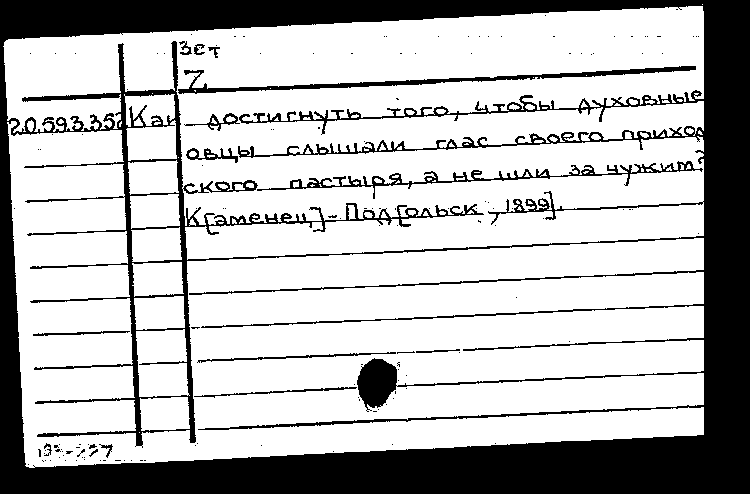 Зет
Z.
20.59.3.352 Как достигнуть того, чтобы духовные
овцы слышали глас своего приход
ского пастыря, а не шли за чужим?
К[аменец]-Под[ольск, 1899].